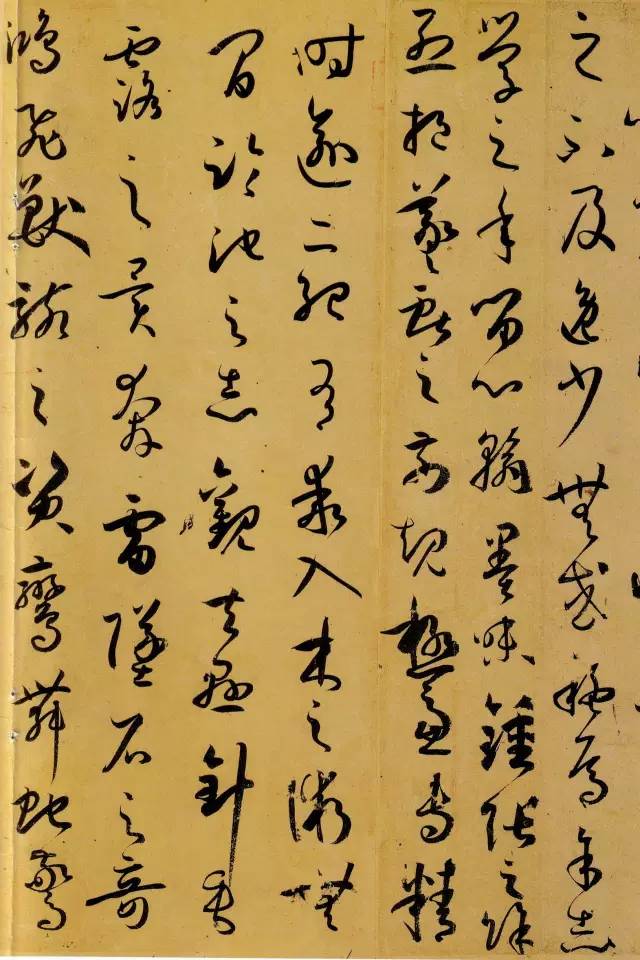 之不及逸少無或疑焉余志
學之年留心翰墨味鍾張之餘
烈挹羲獻之前規極慮專精
時逾二紀有乖入木之術無
間臨池之志觀夫懸針垂
露之異奔雷墜石之奇
鴻飛獸駭之資鸞舞蛇驚